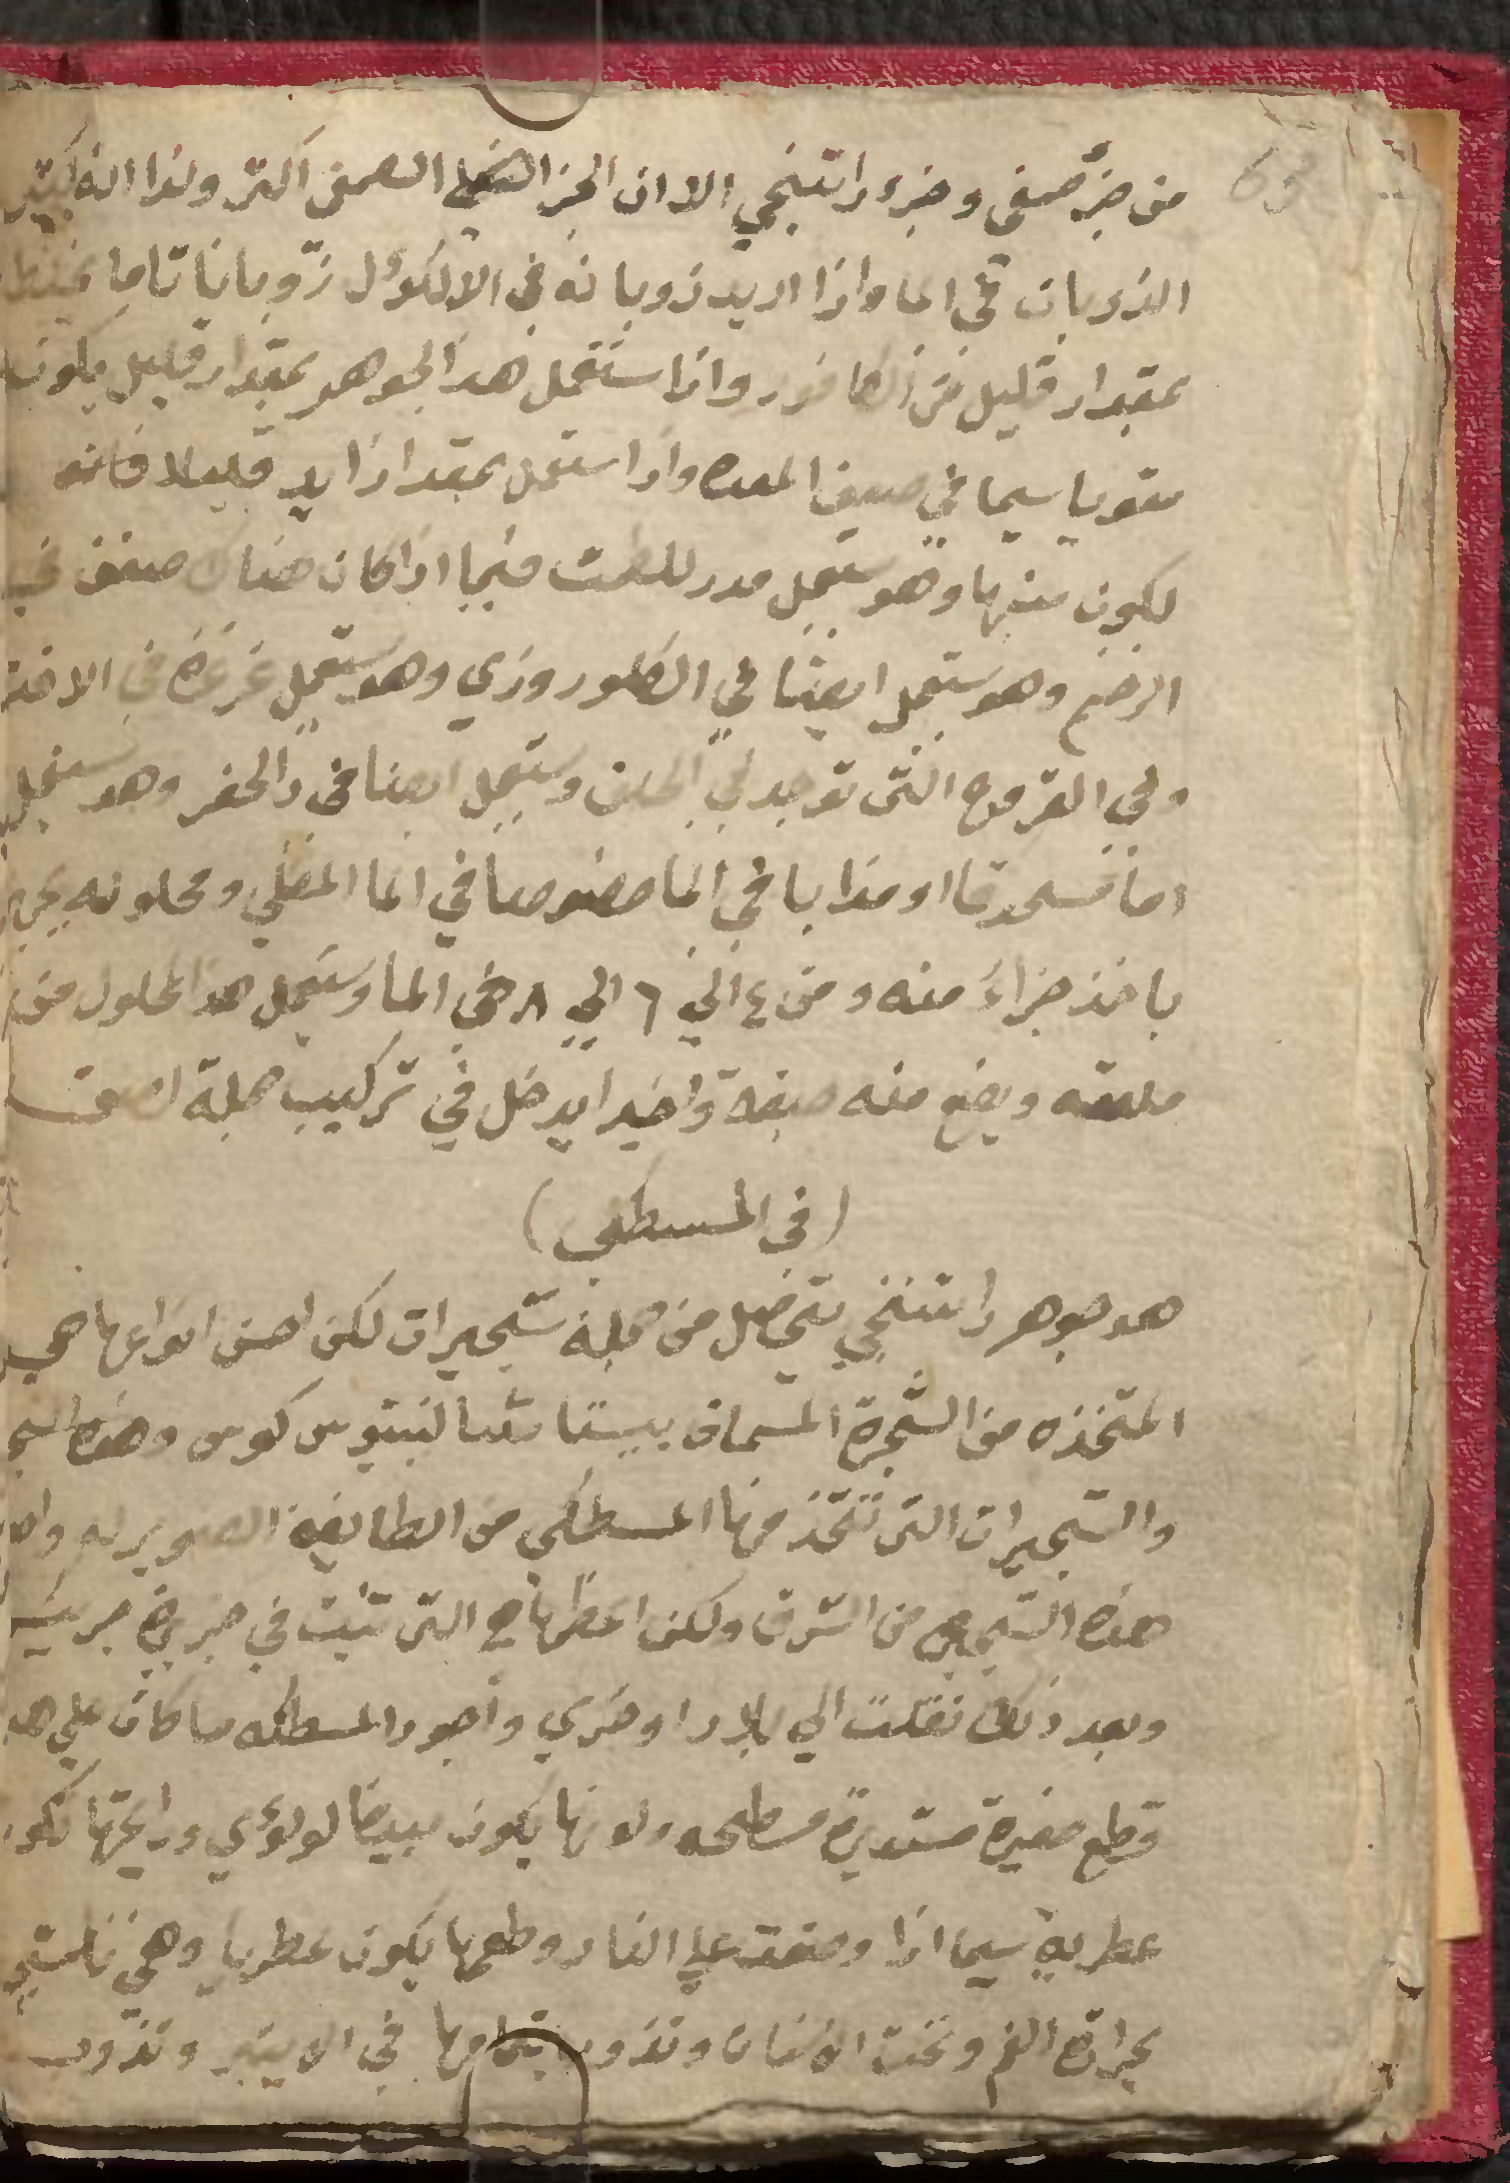 من جزء صمغي وجزء راتنجي الا ان الجز الصمغي اكتر ولذا انه كتير
الذوبان في الما واذا اريد ذوبانه في الالكؤل ذوبانا تاما
بمقدار قليل من الكافور واذا استعمل هذا الجوهر بمقدار قليل يكون
مقويا سيما في ضعيف المعده واذا استعمل بمقدار زايد قليلا فانه
يكون منبها وهو يستعمل مدر للطمث فيما اذا كان هناك ضعف في
الرحم وهو يستعمل ايضا في الكلوروزي وهو يستعمل غرغرة في
وفي القروح التي توجد في الحلق ويستعمل ايضا في دا الحفر وهو يستعمل
اما مسحوقا او مذابا في الما خصوصا في الما المغلي ومحلوله
ياخذ جزاء منه ومن ٤ الي ٦ الي ٨ في الما ويستعمل هذا المحلول من
ملعقه ويصنع منه صبغة واخيرا يدخل في تركيب جملة
(في المسطكي)
هو جوهر راتنجي يتحصل من جملة شجيرات لكن احسن انواعها هي
المتخذه من الشجرة المسماة بيستاشا لنتوس كوس وهذه
والشجيرات التي تتخذ منها المسطكي من الطايفة
هذه الشجيرة من الشرق ولكن اعظمها هي التي تنبت في جزيرة
وبعد ذلك نقلت الي بلاد اوخري واجود المسطكه ما كان علي
قطع صغيرة مستديرة مسطحه ولونها يكون بيضا لولؤي ورايحتها تكون
عطرية سيما اذا وضعت علي النار وطعمها يكون عطريا وهي
بحرارة الفم وتحت الاسنان وتذوب بتمامها في الايتير وتذوب